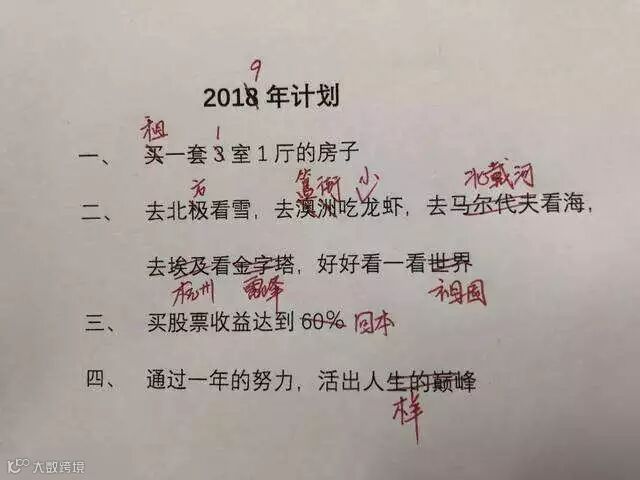 9
2018 年计划
租 1
一、 买一套 3 室 1 厅的房子
方 簋街 小 北戴河
二、 去北极看雪，去澳洲吃龙虾，去马尔代夫看海，
去埃及看金字塔，好好看一看世界
杭州 雷峰 祖国
三、 买股票收益达到 60% 回本
四、 通过一年的努力，活出人生的巅峰
样
大数跨境